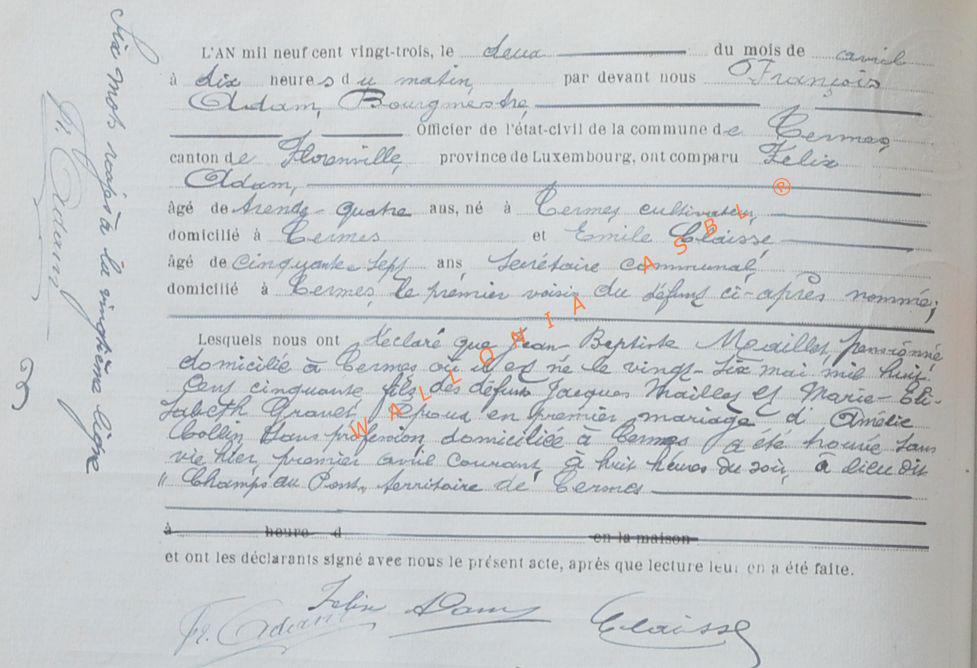 L'AN mil neuf cent vingt-trois, le deux du mois de avril
à dix heures du matin, par devant nous François
Adam, Bourgmestre,
Officier de l'état-civil de la commune de Termes,
canton de Florenville, province de Luxembourg, ont comparu Felix
Adam,
âgé de trente-quatre ans, né à Termes cultivateur,
domicilié à Termes et Emile Claisse
âgé de cinquante-sept ans, secrétaire communal,
domicilié à Termes, le premier voisin du défunt ci-après nommé;
Lesquels nous ont déclaré que Jean Baptiste Maillet pensionné
domicilié à Termes où il est né le vingt-six mai mil huit
cent cinquante fils des défunts Jacques Maillet et Marie-Eli-
sabeth Gravet, époux en premier mariage d'Amélie
Collin sans profession, domiciliée à Termes a été trouvé sans
vie hier, premier avril courant, à huit heures du soir, à lieu dit
"Champs du Pont, territoire de Termes
à heure d en la maison
et ont les déclarants signé avec nous le présent acte, après que lecture leur en a été faite.
Fr. Adam Felix Adam Claisse
Six mots rayés à la vingtième ligne
Fr. Adam
WALLONIA ASBL ®